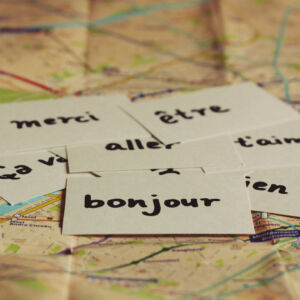 merci
être
aller
t'aim
ça va
bonjour
ien